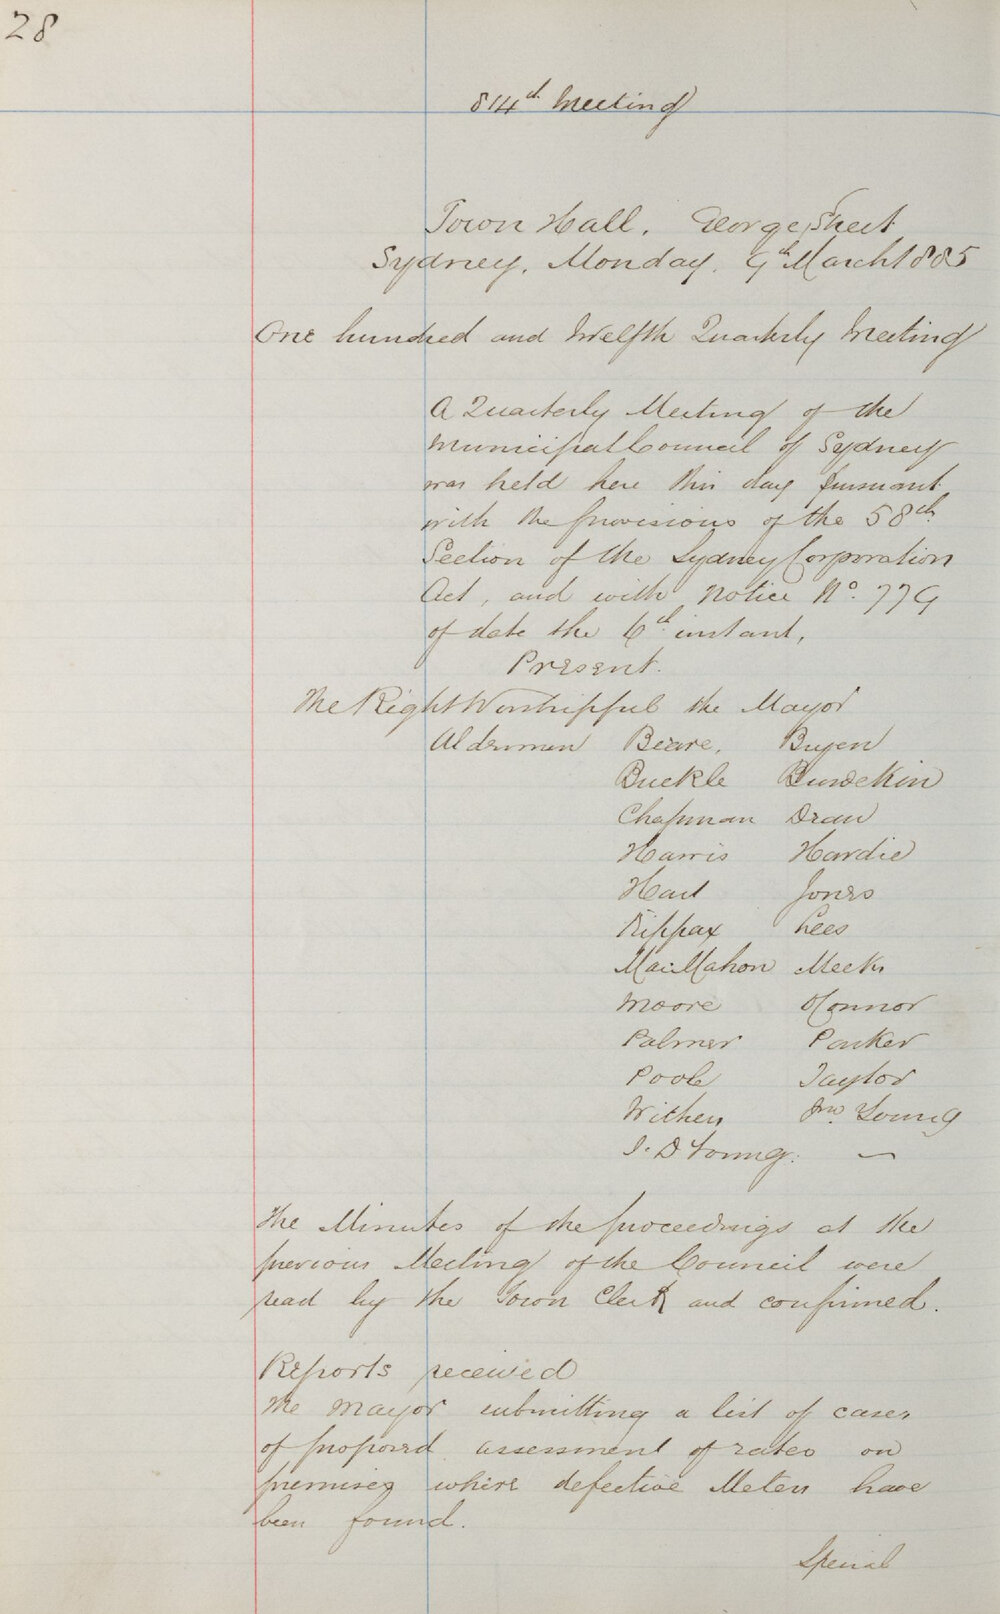 28
814th Meeting
Town Hall, George Street
Sydney, Monday, 9th March 1885
One hundred and Twelfth Quarterly Meeting
A Quarterly Meeting of the
Municipal Council of Sydney
was held here this day pursuant
with the provisions of the 58th
Section of the Sydney Corporation
Act, and with notice No. 779
of date the 6th instant,
Present.
The Right Worshipful the Mayor
Aldermen Beare, Bryen
Buckle Burdekin
Chapman Dean
Harris Hardie
Hart Jones
Kippax Lees
MacMahon Meeks
Moore O'Connor
Palmer Parker
Poole Taylor
Withers Jno. Young
J. D Young. —
The Minutes of the proceedings at the
previous Meeting of the Council were
read by the Town Clerk and confirmed.
Reports received
The Mayor submitting a list of cases
of proposed assessment of rates on
premises where defective Meters have
been found.
Special